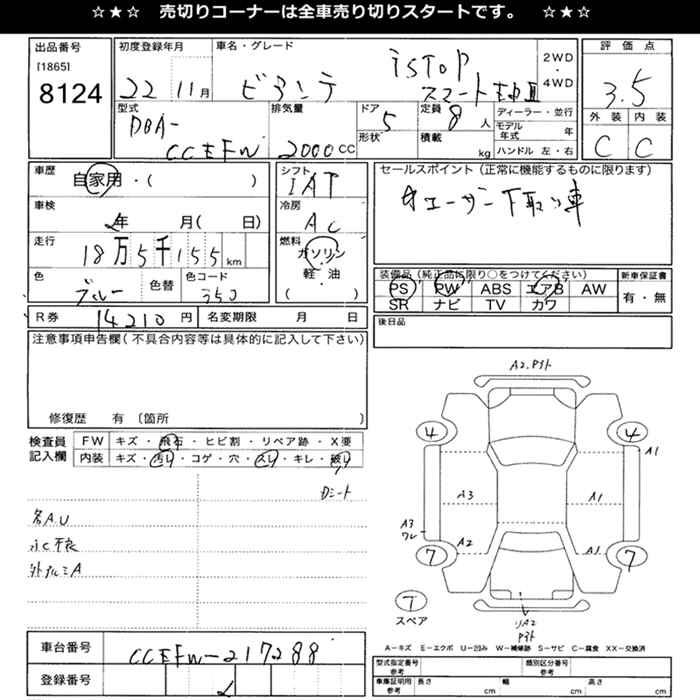 ☆★☆ 売切りコーナーは全車売り切りスタートです。 ☆★☆
出品番号
[1865]
8124
初度登録年月
22 11月
車名・グレード
ビアンテ
iSTOP
スマート
2WD
・
4WD
評価点
3.5
外装 内装
C C
型式
DBA-
CCEFW
排気量
2000CC
ドア
5
形状
定員
8人
積載
kg
ディーラー・並行
モデル年式 年
ハンドル 左・右
車歴
自家用・( )
車検
年 月( 日)
走行
18万5千155km
色
ブルー
色替
色コード
35J
シフト
IAT
冷房
AC
燃料
ガソリン
軽・油
( )
セールスポイント(正常に機能するものに限ります)
オーナー下取り車
装備品(純正品に限り○をつけてください)
PS PW ABS エアB AW
SR ナビ TV カワ
新車保証書
有・無
R券 14210円
名変期限 月 日
後日品
注意事項申告欄(不具合内容等は具体的に記入して下さい)
修復歴 有〔箇所
検査員
記入欄
FW キズ・飛石・ヒビ割・リペア跡・X要
内装 キズ・汚レ・コゲ・穴・スレ・キレ・破レ
Dシート
外アルミA
A2
4 4
A1
A3 A1
A3
ワレ
A2 A1
7 7
7
スペア
リA2
A-キズ E-エクボ U-凹み W-補修跡 S-サビ C-腐食 XX-交換済
車台番号
CCEFW-217288
登録番号
型式指定番号
参考
類別区分番号
参考
車庫証明用
参考
長さ cm 幅 cm 高さ cm